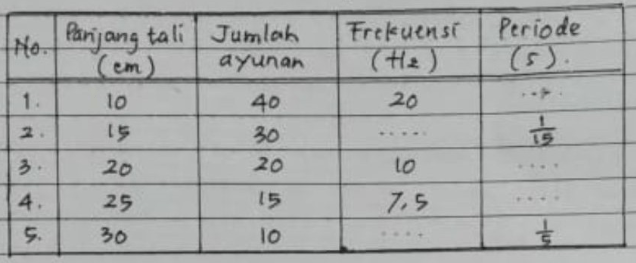 No. Panjang tali (cm) Jumlah ayunan Frekuensi (Hz) Periode (s).
1. 10 40 20 ....
2. 15 30 ..... 1/15
3. 20 20 10 ....
4. 25 15 7,5 ....
5. 30 10 .... 1/5